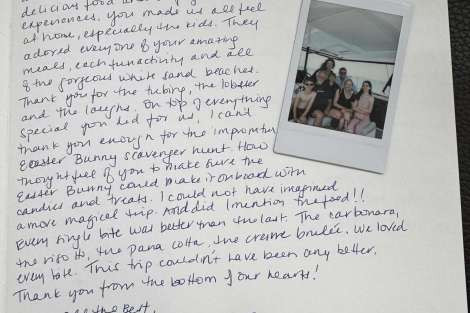 delicious food
experiences, you made us all feel
at home, especially the kids. They
adored everyone of your amazing
meals, each fun activity and all
of the gorgeous white sand beaches.
Thank you for the tubing, the lobster
and the laughs. On top of everything
special you did for us, I can't
thank you enough for the impromptu
Easter Bunny scavenger hunt. How
thoughtful of you to make sure the
Easter Bunny could make it onboard with
candies and treats. I could not have imagined
a more magical trip. And did I mention the food!!
Every single bite was better than the last. The carbonara,
the risotto, the pana cotta, the creme brulee. We loved
every bite. This trip couldn't have been any better.
Thank you from the bottom of our hearts!
the Best,